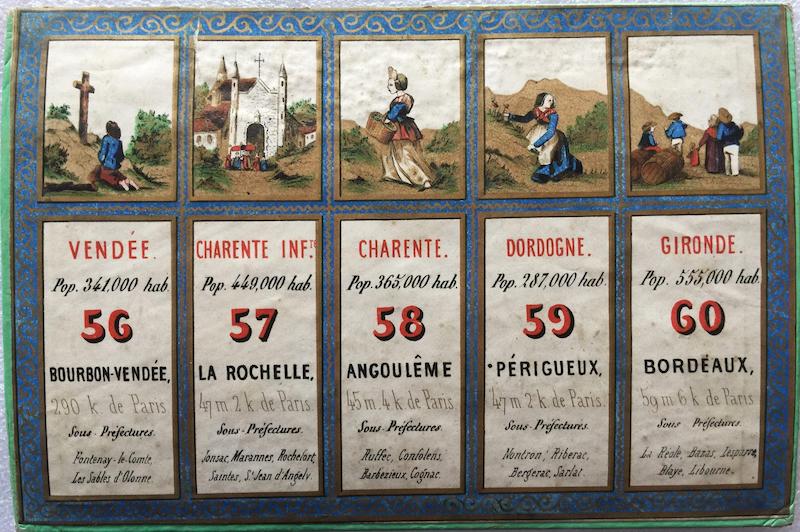 VENDÉE.
Pop. 341,000 hab.
56
BOURBON-VENDÉE,
290 k de Paris
Sous-Préfectures.
Fontenay-le-Comte,
Les Sables d'Olonne.
CHARENTE INF.re
Pop. 449,000 hab.
57
LA ROCHELLE,
47 m 2 k de Paris.
Sous-Préfectures.
Jonsac, Marannes, Rochefort,
Saintes, St Jean d'Angely.
CHARENTE.
Pop. 365,000 hab.
58
ANGOULÊME
45 m. 4 k de Paris.
Sous-Préfectures.
Ruffec, Confolens,
Barbezieux, Cognac.
DORDOGNE.
Pop. 287,000 hab.
59
PÉRIGUEUX,
47 m 2 k. de Paris.
Sous-Préfectures.
Nontron, Riberac,
Bergerac, Sarlat.
GIRONDE.
Pop. 555,000 hab.
60
BORDEAUX,
59 m 6 k de Paris
Sous-Préfectures.
La Réole, Bazas, Lesparre,
Blaye, Libourne.